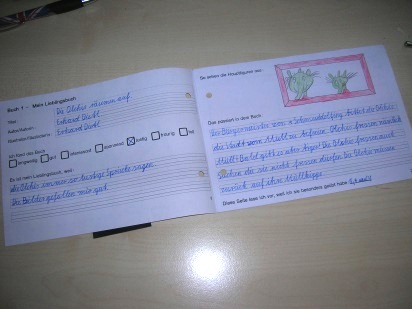 Buch 1 - Mein Lieblingsbuch
Titel: Die Olchis räumen auf
Autor/Autorin: Erhard Dietl
Illustrator/Illustratorin: Erhard Dietl
Ich fand das Buch
langweilig gut spannend lustig traurig
Es ist mein Lieblingsbuch, weil
die Olchis immer so lustige Sprüche sagen.
Die Bilder gefallen mir gut.
So sehen die Hauptfiguren aus:
Das passiert in dem Buch:
Der Bürgermeister von Schmuddelfing bittet die Olchis,
die Stadt vom Müll zu befreien. Olchis fressen nämlich
Müll. Bald gibt es aber Ärger! Die Olchis fressen auch
Sachen die sie nicht fressen dürfen. Die Olchis müssen
zurück auf ihre Müllkippe.
Diese Seite lese ich vor, weil ich sie besonders gelöst habe